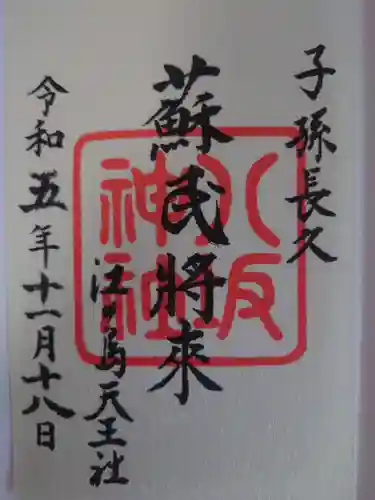 子孫長久
蘇民將來
八坂
神社
江の島天王社
令和五年十一月十八日